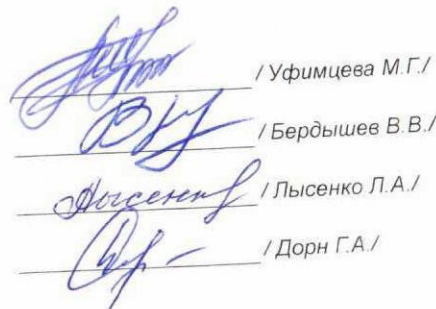 / Уфимцева М.Г./
/ Бердышев В.В./
Лысенко / Лысенко Л.А./
/ Дорн Г.А./